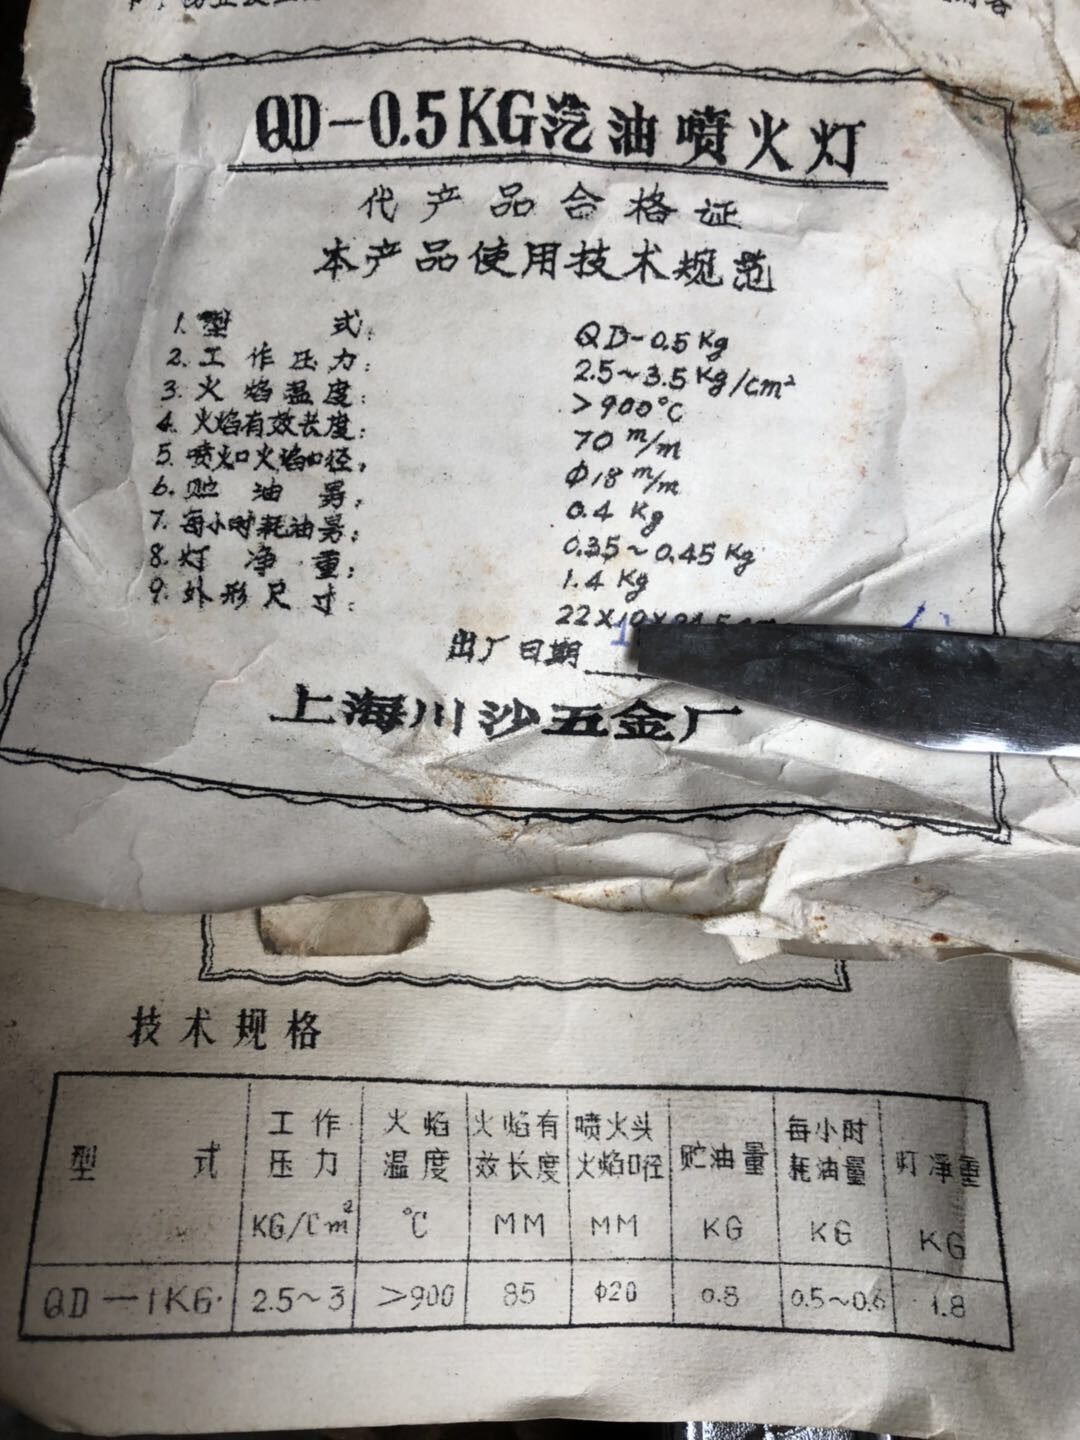 QD-0.5KG汽油喷火灯
代产品合格证
本产品使用技术规范
1. 型 式: QD-0.5Kg
2. 工作压力: 2.5~3.5Kg/cm²
3. 火焰温度: >900°C
4. 火焰有效长度: 70 m/m
5. 喷火口火焰口径, Φ18 m/m
6. 贮油量, 0.4 Kg
7. 每小时耗油量; 0.35~0.45Kg
8. 灯净重; 1.4 Kg
9. 外形尺寸: 22×10×
出厂日期
上海川沙五金厂
技术规格
型式 工作压力 KG/Cm² 火焰温度 °C 火焰有效长度 MM 喷火头火焰口径 MM 贮油量 KG 每小时耗油量 KG 灯净重 KG
QD-1KG· 2.5~3 >900 85 Φ20 0.8 0.5~0.6 1.8